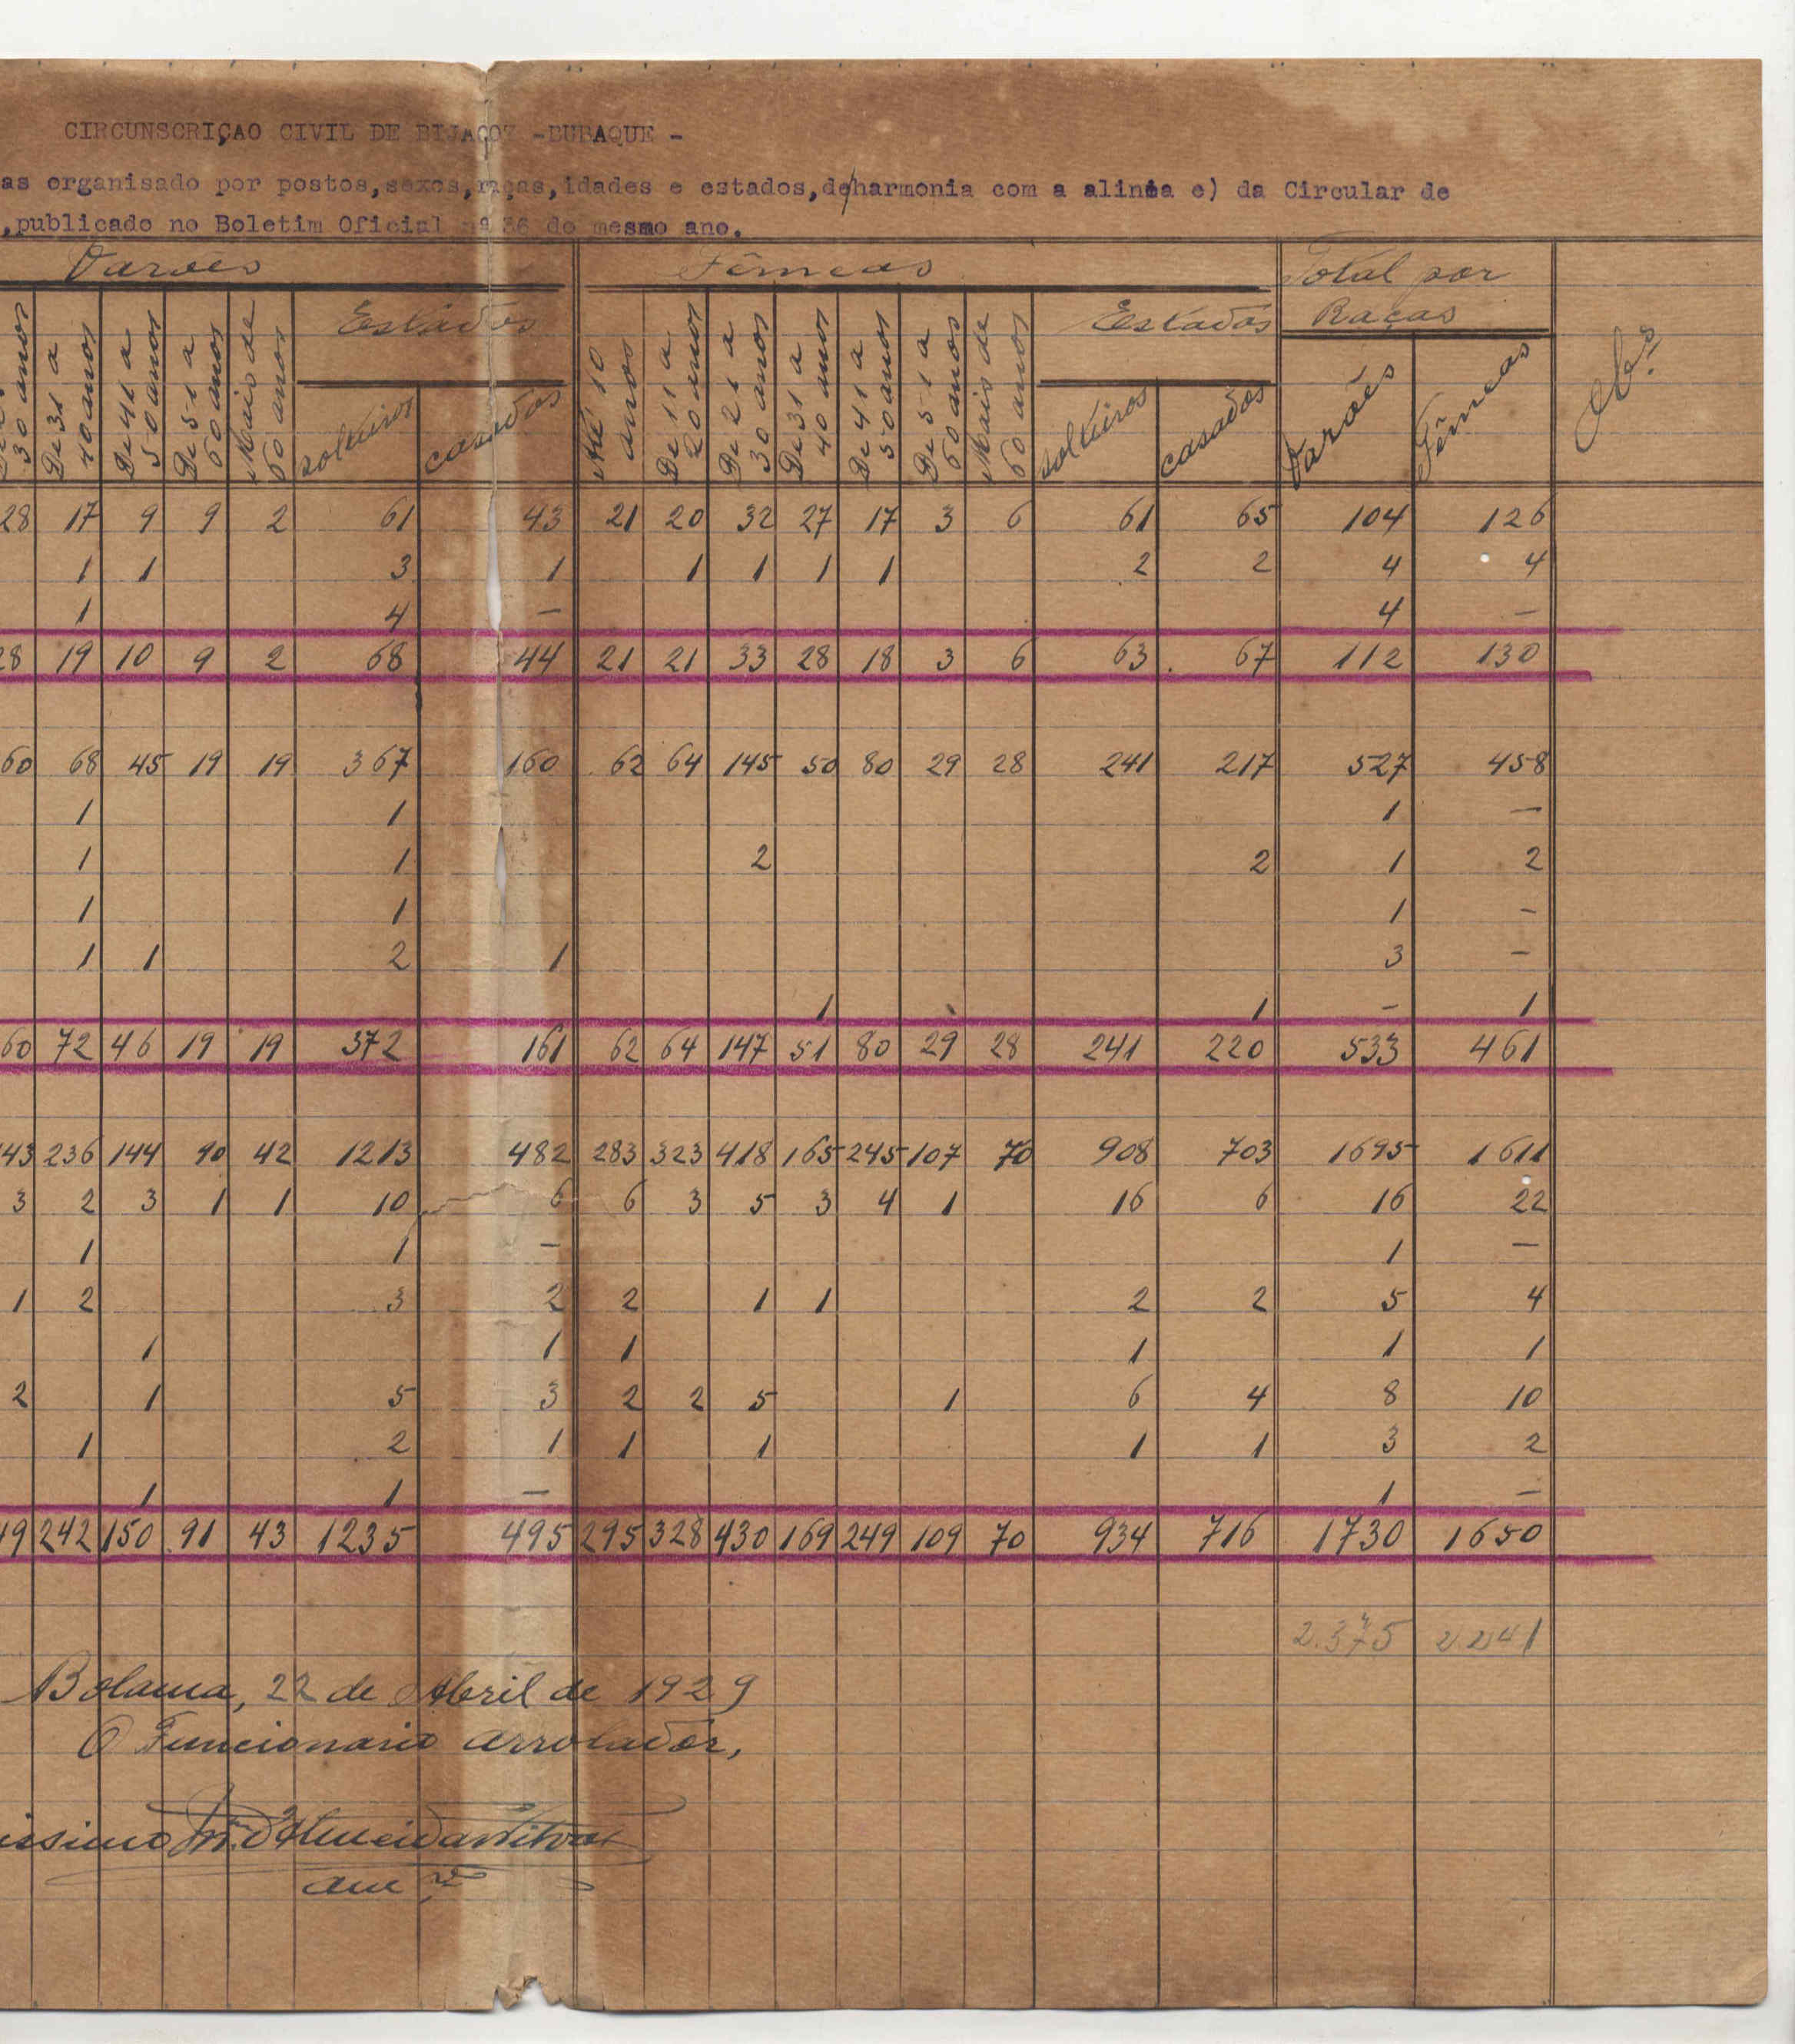 CIRCUNSCRIÇAO CIVIL DE BIJAGOZ -BUBAQUE -
as organisado por postos,sexos,raças,idades e estados,de/harmonia com a alinea e) da Circular de
,publicado no Boletim Oficial nº 36 do mesmo ano.
Varões Fêmeas Total por Raças Obs.
30 anos De 31 a 40 anos De 41 a 50 anos De 51 a 60 anos Mais de 60 anos Estados solteiros casados Até 10 anos De 11 a 20 anos De 21 a 30 anos De 31 a 40 anos De 41 a 50 anos De 51 a 60 anos Mais de 60 anos Estados solteiros casados Varões Fêmeas
28 17 9 9 2 61 43 21 20 32 27 17 3 6 61 65 104 126
1 1 3 1 1 1 1 1 2 2 4 4
1 4 — 4 —
28 19 10 9 2 68 44 21 21 33 28 18 3 6 63 67 112 130
60 68 45 19 19 367 160 62 64 145 50 80 29 28 241 217 527 458
1 1 1 —
1 1 2 2 1 2
1 1 1 -
1 1 2 1 3 -
1 1 - 1
60 72 46 19 19 372 161 62 64 147 51 80 29 28 241 220 533 461
43 236 144 90 42 1213 482 283 323 418 165 245 107 70 908 703 1695 1611
3 2 3 1 1 10 6 6 3 5 3 4 1 16 6 16 22
1 1 — 1 —
1 2 3 2 2 1 1 2 2 5 4
1 1 1 1 1 1
2 1 5 3 2 2 5 1 6 4 8 10
1 2 1 1 1 1 1 3 2
1 1 — 1 -
49 242 150 91 43 1235 495 295 328 430 169 249 109 70 934 716 1730 1650
2.375 2.241
Bolama, 22 de Abril de 1929
O Funcionario arrolador,